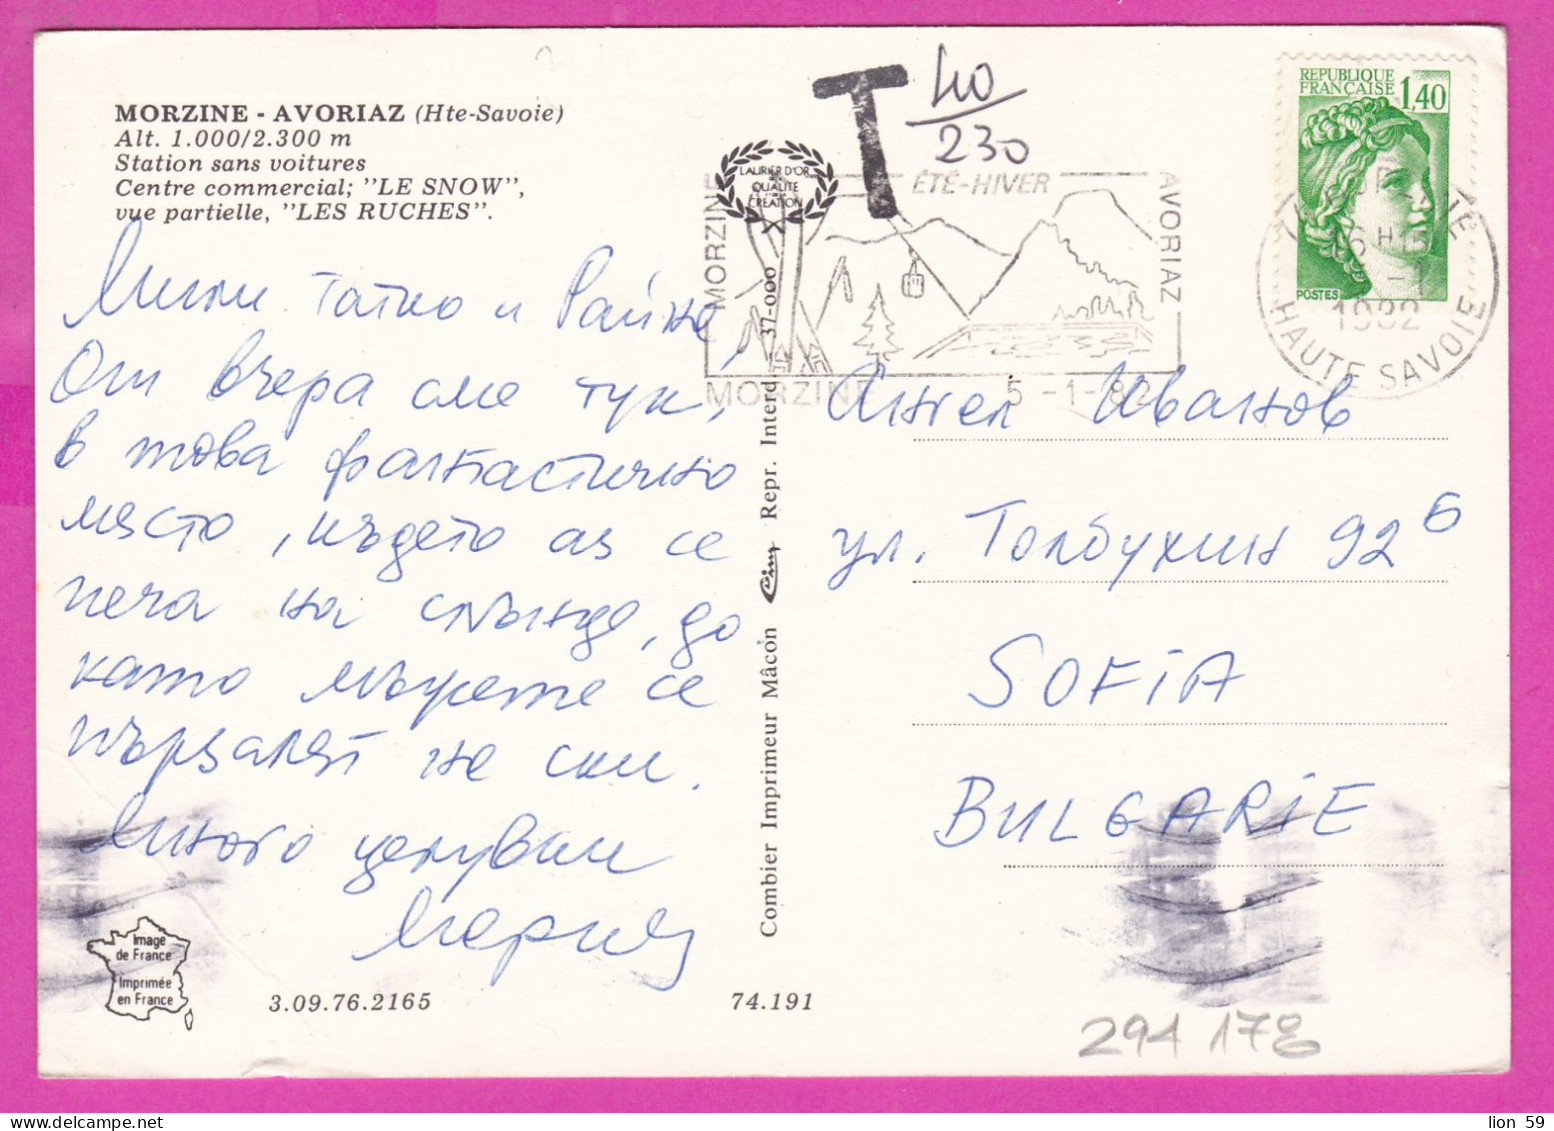 MORZINE - AVORIAZ (Hte-Savoie)
Alt. 1.000/2.300 m
Station sans voitures
Centre commercial; "LE SNOW",
vue partielle, "LES RUCHES".
Мили Татко и Райне,
От вчера сме тук,
в това фантастично
място, където аз се
пека на слънце, до
като мъжете се
пързалят на ски.
Много целувки
Image
de France
Imprimée
en France
3.09.76.2165
74.191
Combier Imprimeur Mâcon Cim Repr. Interd. 37-000
T 40
230
LAURIER D'OR
QUALITE
CREATION
MORZINE
ÉTÉ-HIVER
AVORIAZ
MORZINE 5 -1- 82
REPUBLIQUE
FRANÇAISE 1,40
POSTES
16 H 15
1982
HAUTE SAVOIE
Ангел Иванов
ул. Толбухин 92 б
SOFIA
BULGARIE
294 178
lion 59